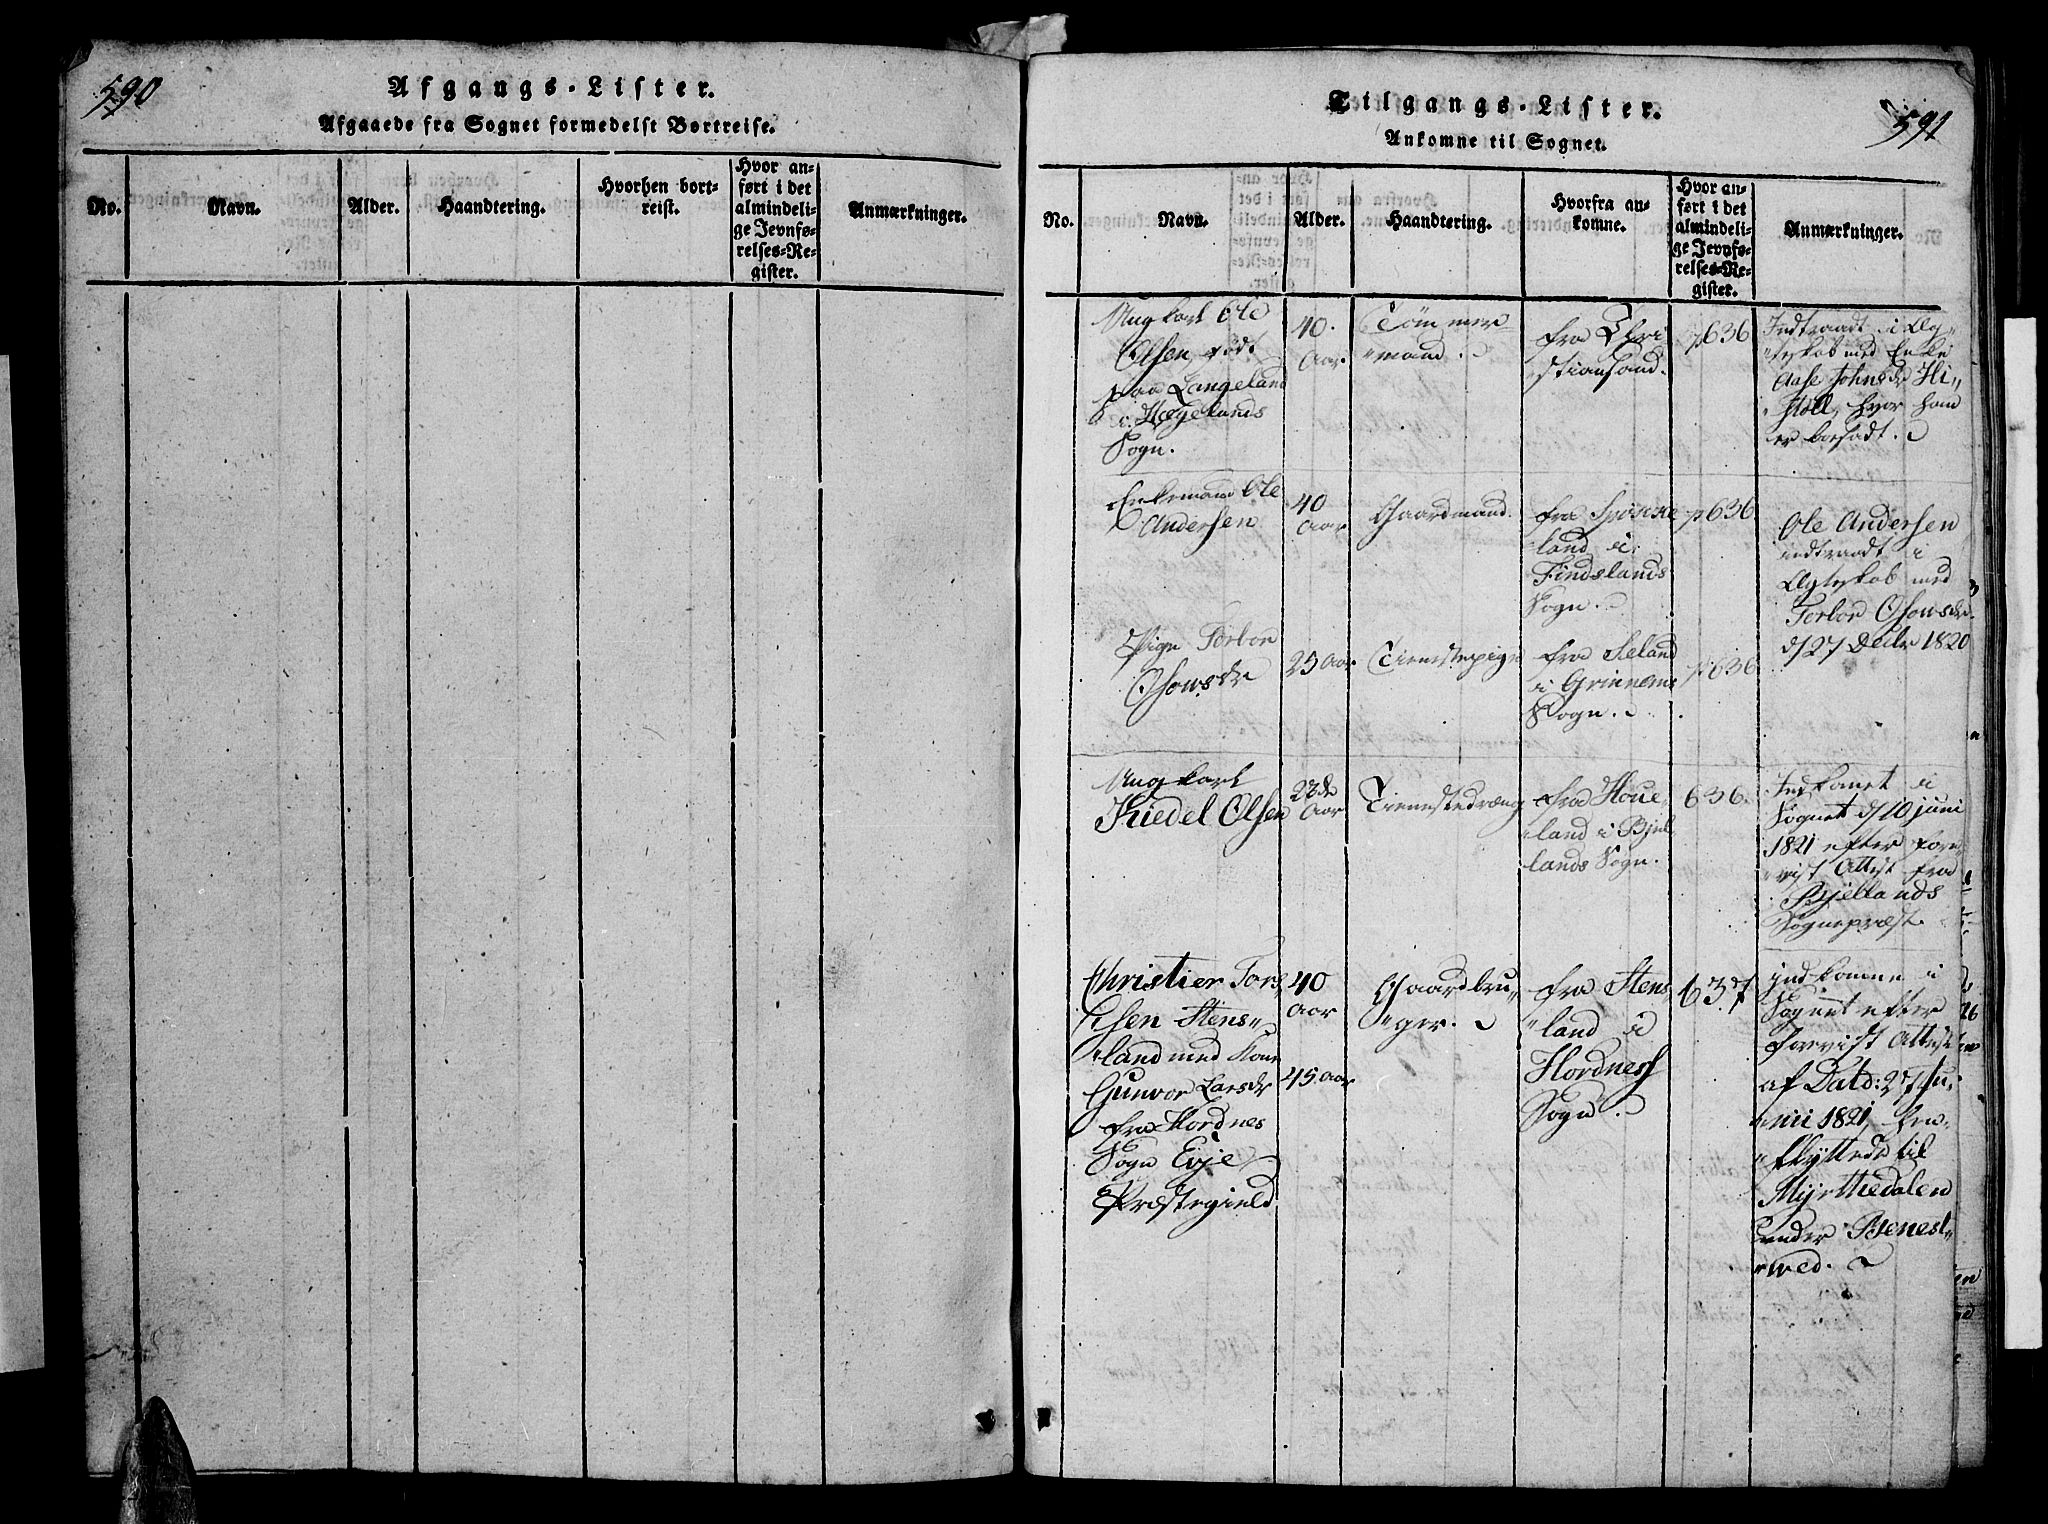 590
Afgangs-Lister.
Afgaaede fra Sognet formedelst Bortreise.
No.
Navn.
Alder.
Haandtering.
Hvorhen bort-
reist.
Hvor an-
ført i det
almindeli-
ge Jevnfø-
relses-Re-
gister.
Anmærkninger.
591
Tilgangs-Lister.
Ankomne til Sognet.
No.
Navn.
Alder.
Haandtering.
Hvorfra an-
komne.
Hvor an-
ført i det
almindeli-
ge Jevnfø-
relses-Re-
gister.
Anmærkninger.
Ungkarl Ole
Olsen, født
paa Langeland
i Hægelands
Sogn.
40.
Aar.
Tømmer-
"mand.
fra Chri
"stiansand.
p636
Indtraadt i Æg-
"teskab med Enke
Aase Johnsdr Hi-
"støll, hvor han
er bosadt.
Enkemand Ole
Andersen
40
Aar
Gaardmand.
fra
land i
Findslands
Sogn.
p636.
Ole Andersen
indtraadt i
Ægteskab med
Torbor Osowsdr.
d/27 Decbr 1820
Pige Torbor
Osowsdr
25 Aar.
Tienestepige
fra Seland
i Grinnems
Sogn.
p636
Ungkarl
Kiedel Olsen
Aar
Tienestedræng
fra Houe-
"land i Bjel
lands Sogn.
636.
Indkomet i
Sognet d/10 juni
1821 efter fore
"vist Attest fra
Bjellands
Sognepræst.
Christier Tors
Olsen Stens"
"land med Kone
Gunvor Larsdr
fra Hordnes
Sogn Evje
Præstegield
40
Aar
45. Aar
Gaardbru"
"ger.
fra Stens
"land i
Hordness
Sogn.
637
indkomne i
Sognet efter
forevist Attest
af Datd: 27 Ju-
"nii 1821, hen-
"flyttede til
Myrthedalen
under Benest"
"wed.